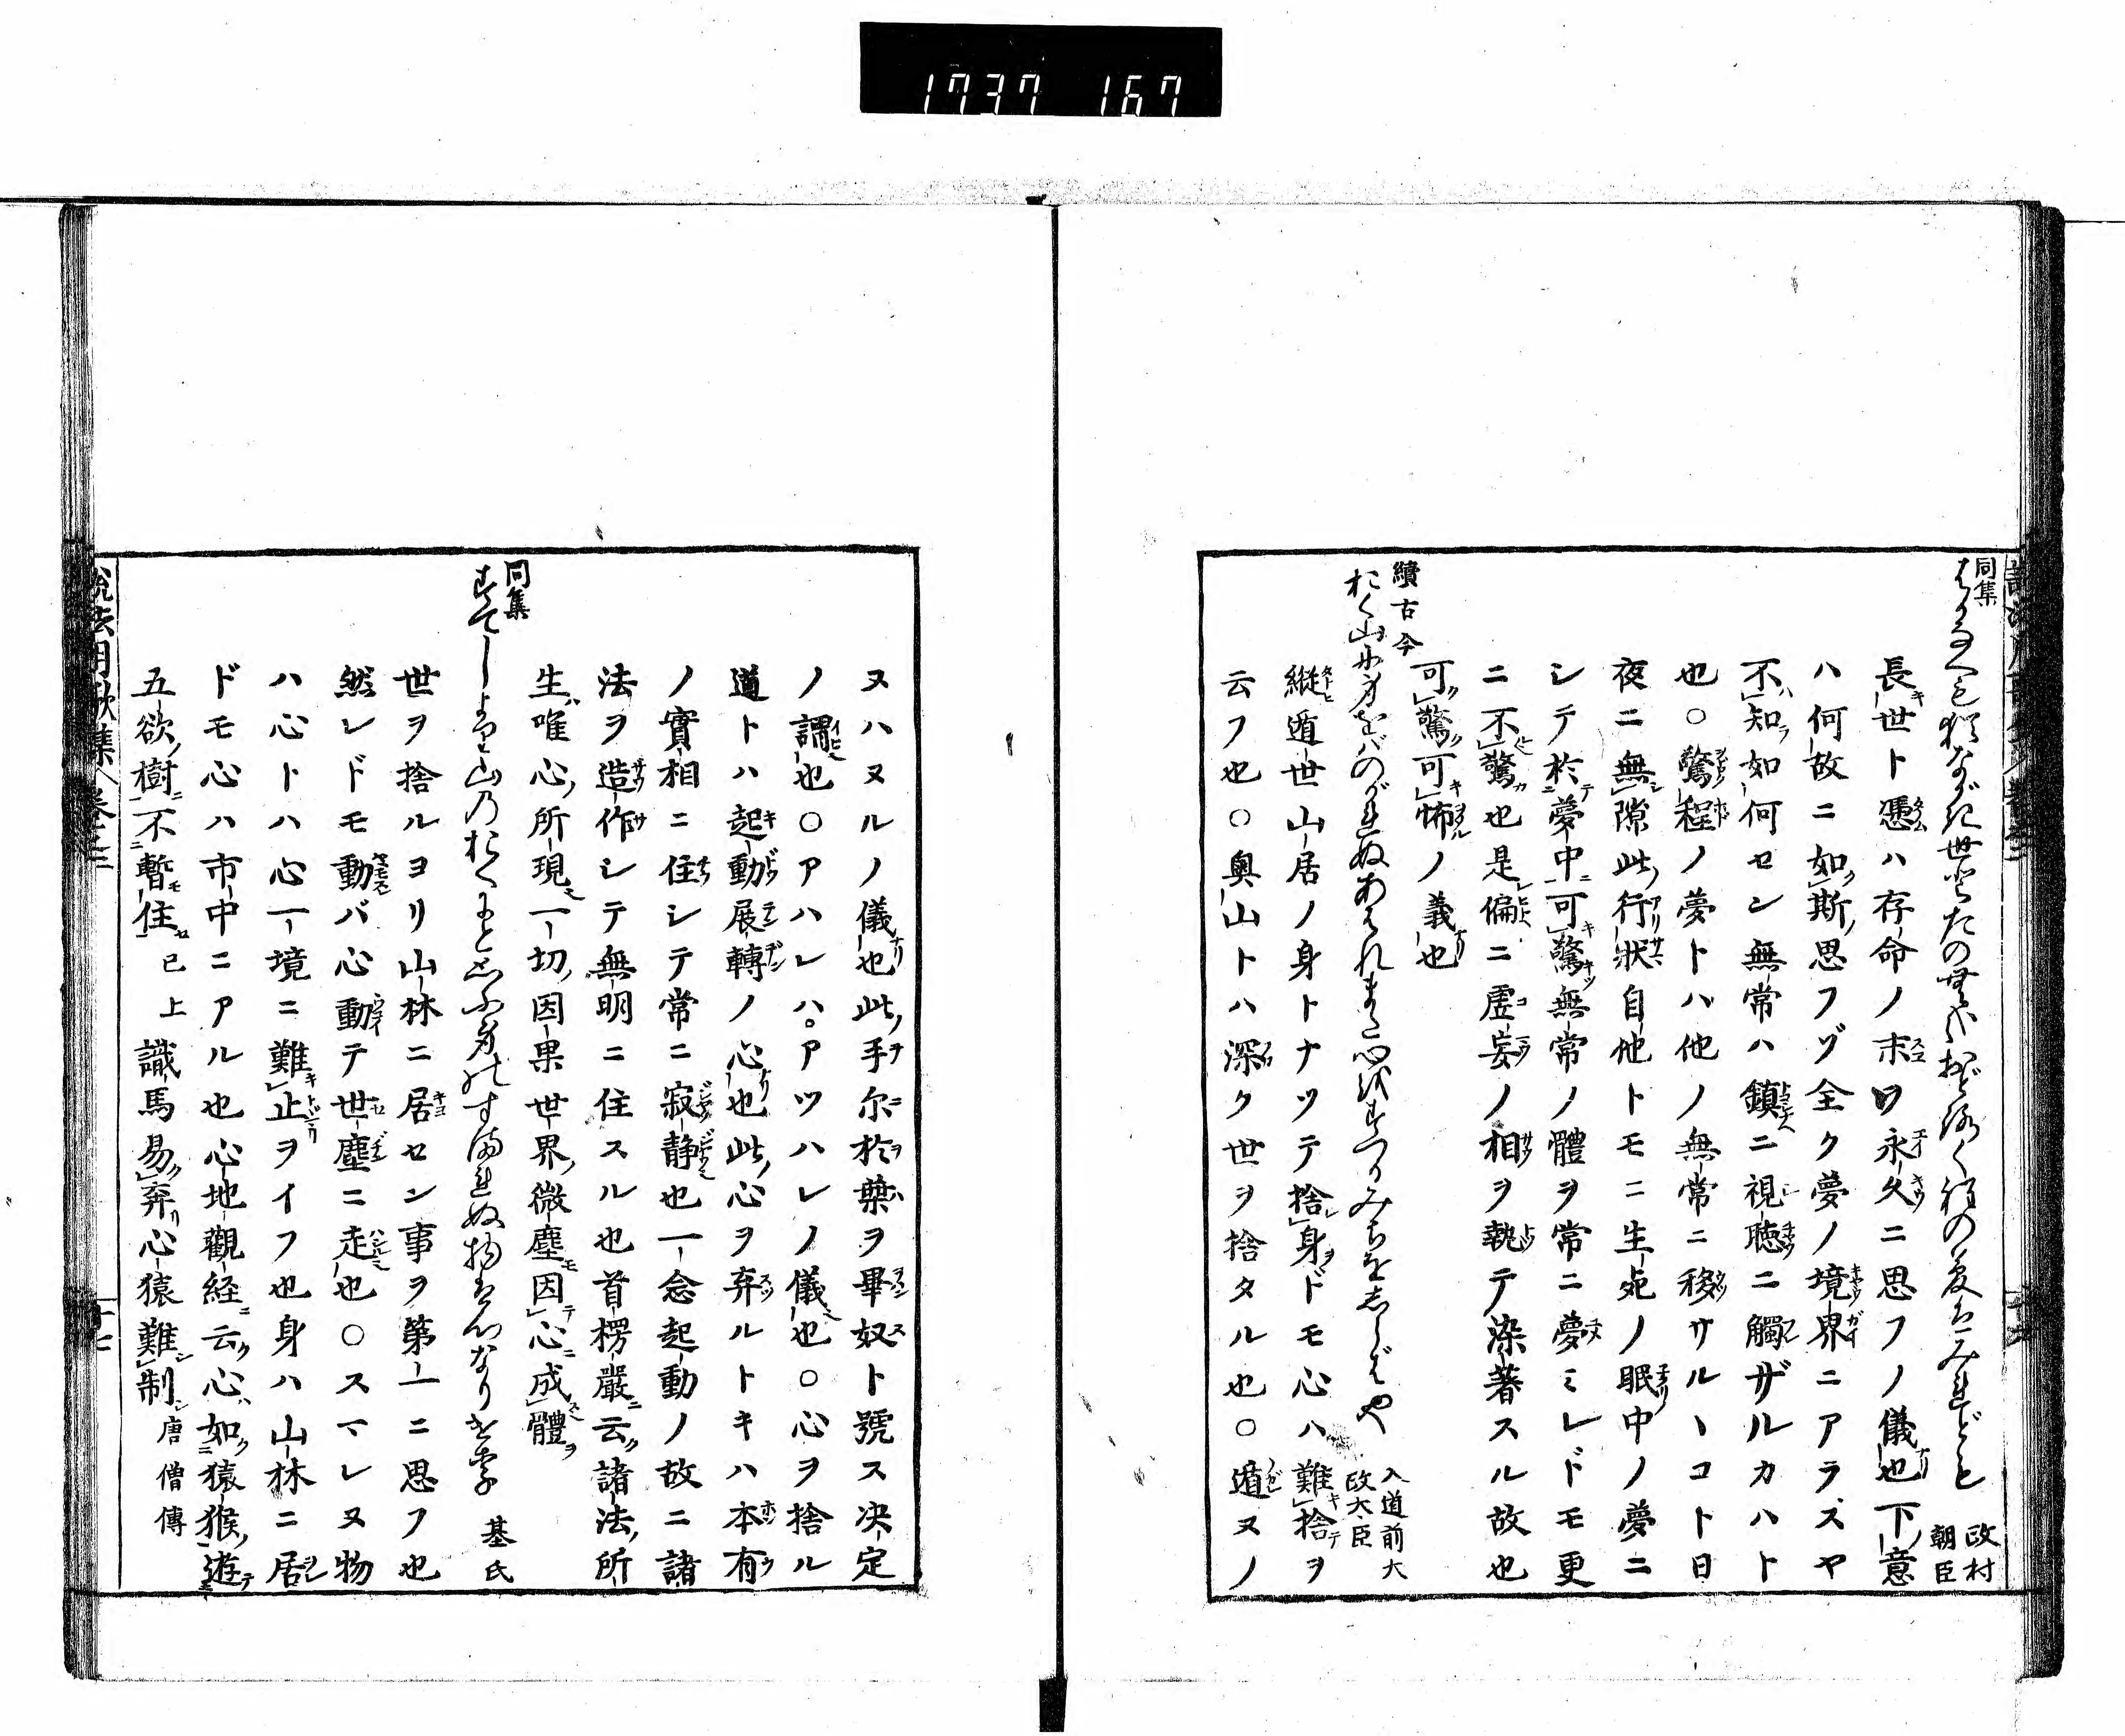 1737 167
同集
政村
朝臣
長世ト憑ハ存命ノ末ヲ永久ニ思フノ儀也下ノ意
ハ何故ニ如斯思フゾ全ク夢ノ境界ニアラズヤ
不知如何セン無常ハ鎮ニ視聴ニ觸ザルカハト
也○驚程ノ夢トハ他ノ無常ニ移サルヽコト日
夜ニ無隙此行狀自他トモニ生死ノ眠中ノ夢ニ
シテ於夢中可驚無常ノ體ヲ常ニ夢ミレドモ更
ニ不驚也是偏ニ虛妄ノ相ヲ執テ染著スル故也
可驚可怖ノ義也
續古今
おく山に身をバのがれぬあはれまた心をすつるみちをしらばや
入道前太
政大臣
縱遁世山居ノ身トナツテ捨身ドモ心ハ難捨ヲ
云フ也○奥山トハ深ク世ヲ捨タル也○遁ヌノ
ヌハヌルノ儀也此手尓於葉ヲ畢奴ト號ス決定
ノ謂也○アハレハ。アツハレノ儀也○心ヲ捨ル
道トハ起動展轉ノ心也此心ヲ弃ルトキハ本有
ノ實相ニ住シテ常ニ寂静也一念起動ノ故ニ諸
法ヲ造作シテ無明ニ住スル也首楞嚴云諸法所
生唯心所現一切因果世界微塵因心成體
同集
基氏
世ヲ捨ルヨリ山林ニ居セン事ヲ第一ニ思フ也
然レドモ動バ心動テ世塵ニ走也○スマレヌ物
ハ心トハ心一境ニ難止ヲイフ也身ハ山林ニ居
ドモ心ハ市中ニアル也心地觀経云心如猿猴遊
五欲樹不暫住已上識馬易弃心猿難制唐僧傳
說法用歌集 卷之二
十七